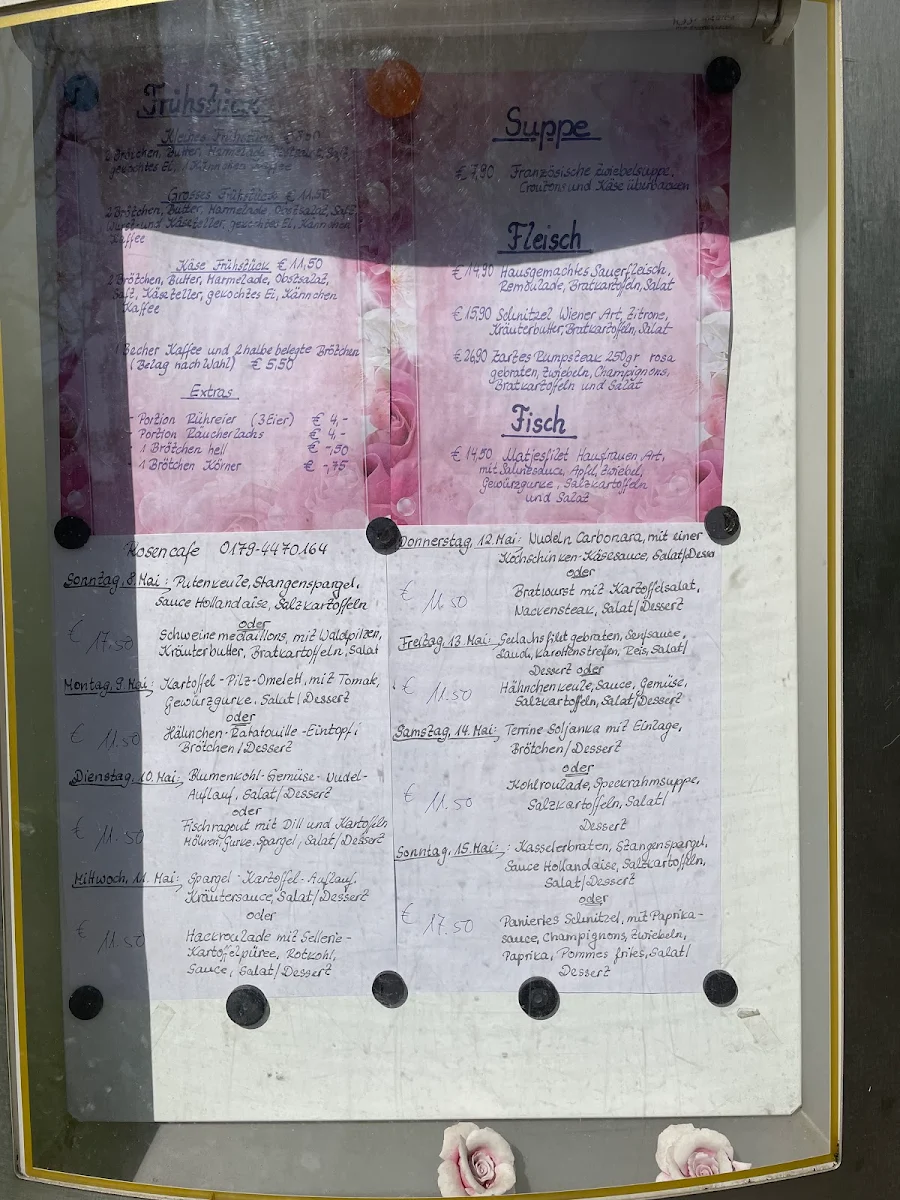 Frühstück
Kleines Frühstück
2 Brötchen, Butter, Marmelade, Obstsalat, Saft,
gekochtes Ei, 1 Kännchen Kaffee
Grosses Frühstück € 11,50
2 Brötchen, Butter, Marmelade Obstsalat, Saft
Wurst- und Käseteller, gekochtes Ei, Kännchen
Kaffee
Käse Frühstück € 11,50
2 Brötchen, Butter, Marmelade, Obstsalat,
Saft, Käseteller, gekochtes Ei, Kännchen
Kaffee
1 Becher Kaffee und 2 halbe belegte Brötchen
(Belag nach Wahl) € 5,50
Extras
- Portion Rühreier (3 Eier) € 4,-
- Portion Räucherlachs € 4,-
- 1 Brötchen hell € -,50
- 1 Brötchen Körner € -,75
Suppe
€ 7,90 Französische Zwiebelsuppe,
Croutons und Käse überbacken
Fleisch
€ 14,90 Hausgemachtes Sauerfleisch,
Remoulade, Bratkartoffeln, Salat
€ 15,90 Schnitzel Wiener Art, Zitrone,
Kräuterbutter, Bratkartoffeln, Salat
€ 26,90 Zartes Rumpsteak 250gr rosa
gebraten, Zwiebeln, Champignons,
Bratkartoffeln und Salat
Fisch
€ 14,50 Matjesfilet Hausfrauen Art,
mit Sahnesauce, Apfel, Zwiebel,
Gewürzgurke, Salzkartoffeln
und Salat
Rosencafe 0179-4470164
Sonntag, 8. Mai: Putenkeule, Stangenspargel,
Sauce Hollandaise, Salzkartoffeln
oder
€ 17.50 Schweinemedaillons, mit Waldpilzen,
Kräuterbutter, Bratkartoffeln, Salat
Montag, 9. Mai: Kartoffel-Pilz-Omelett, mit Tomak,
Gewürzgurke, Salat/Dessert
oder
€ 11.50 Hähnchen-Ratatouille-Eintopf,
Brötchen/Dessert
Dienstag, 10. Mai: Blumenkohl-Gemüse-Nudel-
Auflauf, Salat/Dessert
oder
€ 11.50 Fischragout mit Dill und Kartoffeln
Möhren, Gurke, Spargel, Salat/Dessert
Mittwoch, 11. Mai: Spargel-Kartoffel-Auflauf,
Kräutersauce, Salat/Dessert
oder
€ 11.50 Hackroulade mit Sellerie-
Kartoffelpüree, Rotkohl,
Sauce, Salat/Dessert
Donnerstag, 12. Mai: Nudeln Carbonara, mit einer
Kochschinken-Käsesauce, Salat/Desse
oder
€ 11.50 Bratwurst mit Kartoffelsalat,
Nackensteak, Salat/Dessert
Freitag, 13. Mai: Seelachsfilet gebraten, Senfsauce,
Lauch, Karottenstreifen, Reis, Salat/
Dessert oder
€ 11.50 Hähnchenkeule, Sauce, Gemüse,
Salzkartoffeln, Salat/Dessert
Samstag, 14. Mai: Terrine Soljanka mit Einlage,
Brötchen/Dessert
oder
€ 11.50 Kohlroulade, Speckrahmsuppe,
Salzkartoffeln, Salat/
Dessert
Sonntag, 15. Mai: Kasselerbraten, Stangenspargel,
Sauce Hollandaise, Salzkartoffeln,
Salat/Dessert
oder
€ 17.50 Paniertes Schnitzel, mit Paprika-
sauce, Champignons, Zwiebeln,
Paprika, Pommes frites, Salat/
Dessert